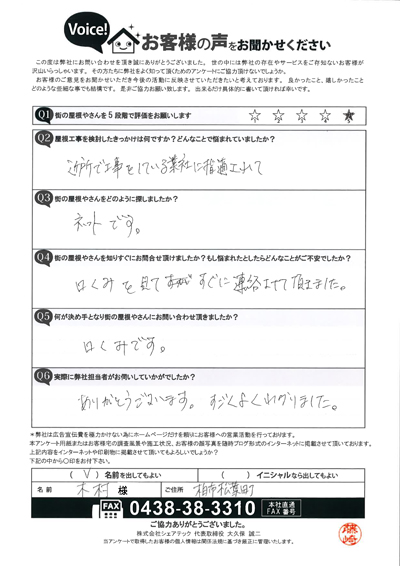 Voice!
お客様の声をお聞かせください
この度は弊社にお問い合わせを頂き誠にありがとうございました。世の中には弊社の存在やサービスをご存知ないお客様が
沢山いらっしゃいます。その方たちに弊社をよく知って頂くためのアンケートにご協力頂けないでしょうか。
お客様のご意見をお聞かせいただき今後の活動に反映させていただきたいと考えております。良かったこと、嬉しかったこと
どのような些細な事でも結構です。是非ご協力お願い致します。出来るだけ具体的に書いて頂ければ幸いです。
Q1 街の屋根やさんを5段階で評価をお願いします ☆ ☆ ☆ ☆ ★
Q2 屋根工事を検討したきっかけは何ですか?どんなことで悩まれていましたか?
近所で工事をしている業社に指適されて
Q3 街の屋根やさんをどのように探しましたか?
ネットです。
Q4 街の屋根やさんを知りすぐにお問合せ頂けましたか?もし悩まれたとしたらどんなことがご不安でしたか?
口くみを見て すぐに連絡させて頂きました。
Q5 何が決め手となり街の屋根やさんにお問い合わせ頂きましたか?
口くみです。
Q6 実際に弊社担当者がお伺いしていかがでしたか?
ありがとうございます。すごくよくわかりました。
*弊社は広告宣伝費を極力かけない為にホームページだけを頼りにお客様への営業活動を行っております。
本アンケート用紙またはお客様宅の調査風景や施工状況、お客様の顔写真を随時ブログ形式のインターネットに掲載させて頂いております。
上記内容をインターネットや印刷物に掲載させて頂いてもよろしいでしょうか?
下記の中から○印をお付下さい。
( V ) 名前を出してもよい ( ) イニシャルなら出してもよい
名前 木村 様 ご住所 柏市松葉町
FAX 0438-38-3310 本社直通 FAX番号
ご協力ありがとうございました。
株式会社シェアテック 代表取締役 大久保 誠二
当アンケートで取得したお客様の個人情報は関係法規に基づき厳正に管理いたします。